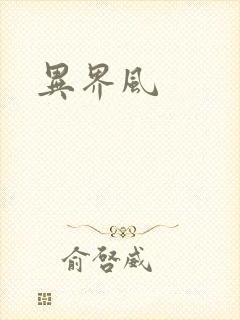 異界風
俞啓威